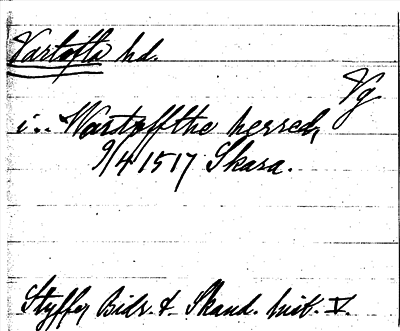 Vartofta hd.
Vg
i.. Wartoffthe herred,
9/4 1517 Skara.
Styffe, Bidr. t. Skand. hist. V.